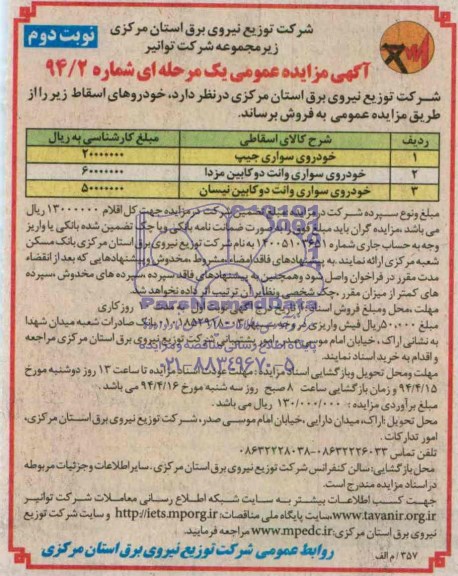 شرکت توزیع نیروی برق استان مرکزی
زیرمجموعه شرکت توانیر
نوبت دوم
آگهی مزایده عمومی یک مرحله ای شماره ۹۴/۲
شرکت توزیع نیروی برق استان مرکزی درنظر دارد، خودروهای اسقاط زیر را از
طریق مزایده عمومی به فروش برساند.
ردیف شرح کالای اسقاطی مبلغ کارشناسی به ریال
۱ خودروی سواری جیپ ۲۰۰۰۰۰۰۰
۲ خودروی سواری وانت دوکابین مزدا ۶۰۰۰۰۰۰۰
۳ خودروی سواری وانت دوکابین نیسان ۵۰۰۰۰۰۰۰
مبلغ ونوع سپرده شرکت در مزایده: مبلغ تضمین شرکت در مزایده جهت کل اقلام ۱۳۰۰۰۰۰۰ ریال
می باشد، مزایده گران باید مبلغ فوق را به صورت ضمانت نامه بانکی ویا چک تضمین شده بانکی یا واریز
وجه به حساب جاری شماره ۱۴۰۰۵۱۰۳۶۵۱ به نام شرکت توزیع نیروی برق استان مرکزی بانک مسکن
شعبه مرکزی ارائه نمایند. به پیشنهادهای فاقد امضا، مشروط، مخدوش وپیشنهادهایی که بعد از انقضاء
مدت مقرر در فراخوان واصل شود وهمچنین به پیشنهادهای فاقد سپرده، سپرده های مخدوش، سپرده
های کمتر از میزان مقرر، چک شخصی ونظایر آن ترتیب اثر داده نخواهد شد.
مهلت، محل ومبلغ فروش اسناد: از تاریخ درج آگهی نوبت اول به مدت ۱۰ روز کاری
مبلغ ۵۰۰۰۰ ریال فیش واریزی در وجه سیبا بانک صادرات شعبه میدان شهدا
به نشانی اراک، خیابان امام موسی صدر، امور پشتیبانی شرکت توزیع نیروی برق استان مرکزی مراجعه
و اقدام به خرید اسناد نمایند.
مهلت ومحل تحویل وبازگشایی اسناد مزایده: مهلت عودت اسناد مزایده تا ساعت ۱۳ روز دوشنبه مورخ
۹۴/۴/۱۵ و زمان بازگشایی ساعت ۸ صبح روز سه شنبه مورخ ۹۴/۴/۱۶ می باشد.
مبلغ برآوردی مزایده: ۱۳۰/۰۰۰/۰۰۰ ریال می باشد.
محل تحویل: اراک، میدان دارایی، خیابان امام موسی صدر، شرکت توزیع نیروی برق استان مرکزی،
امور تدارکات.
تلفن تماس ۰۸۶۳۲۲۲۶۰۳۳-۰۸۶۳۲۲۲۸۰۳۸
محل بازگشایی: سالن کنفرانس شرکت توزیع نیروی برق استان مرکزی، سایر اطلاعات وجزئیات مربوطه
در اسناد مزایده مندرج است.
جهت کسب اطلاعات بیشتر به سایت شبکه اطلاع رسانی معاملات شرکت توانیر
www.tavanir.org.ir، سایت پایگاه ملی مناقصات: http://iets.mporg.ir و سایت شرکت توزیع
نیروی برق استان مرکزی: www.mpedc.ir مراجعه فرمایید.
روابط عمومی شرکت توزیع نیروی برق استان مرکزی
۳۵۷/م الف
ParsNamadData
پایگاه اطلاع رسانی مناقصه و مزایده
۰۲۱-۸۸۳۴۹۶۷۰-۵